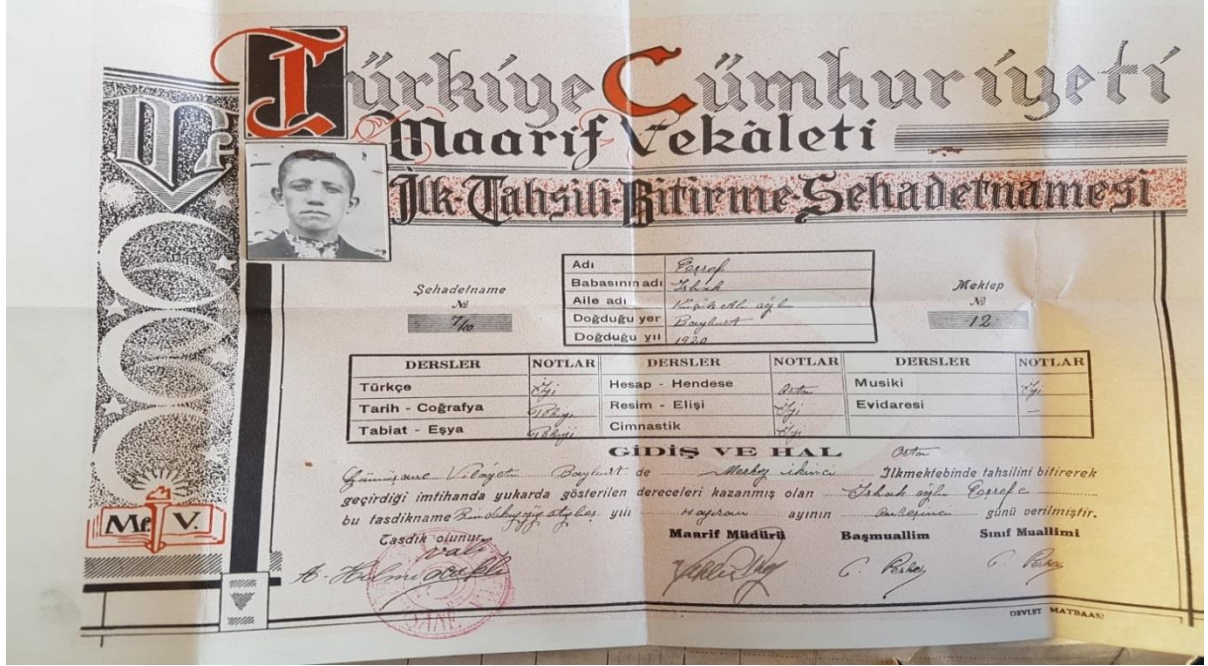 Türkiye Cümhuriyeti
Maarif Vekâleti
İlk-Tahsili-Bitirme-Şehadetnamesi
Şehadetname
№
7/10
Adı Eşref
Babasının adı İshak
Aile adı Küçük Ali oğlu
Doğduğu yer Bayburt
Doğduğu yıl 1920
Mektep
№
12
DERSLER NOTLAR DERSLER NOTLAR DERSLER NOTLAR
Türkçe İyi Hesap - Hendese Orta Musiki İyi
Tarih - Coğrafya Pekiyi Resim - Elişi İyi Evidaresi —
Tabiat - Eşya Pekiyi Cimnastik İyi
GİDİŞ VE HAL Orta
Gümüşane Vilâyetin Bayburt de Merkez ikinci İlkmektebinde tahsilini bitirerek
geçirdiği imtihanda yukarda gösterilen dereceleri kazanmış olan İshak oğlu Eşref e
bu tasdikname yılı Haziran ayının günü verilmiştir.
Tasdik olunur. Maarif Müdürü Başmuallim Sınıf Muallimi
Vali
Mf. V.
DEVLET MATBAASI